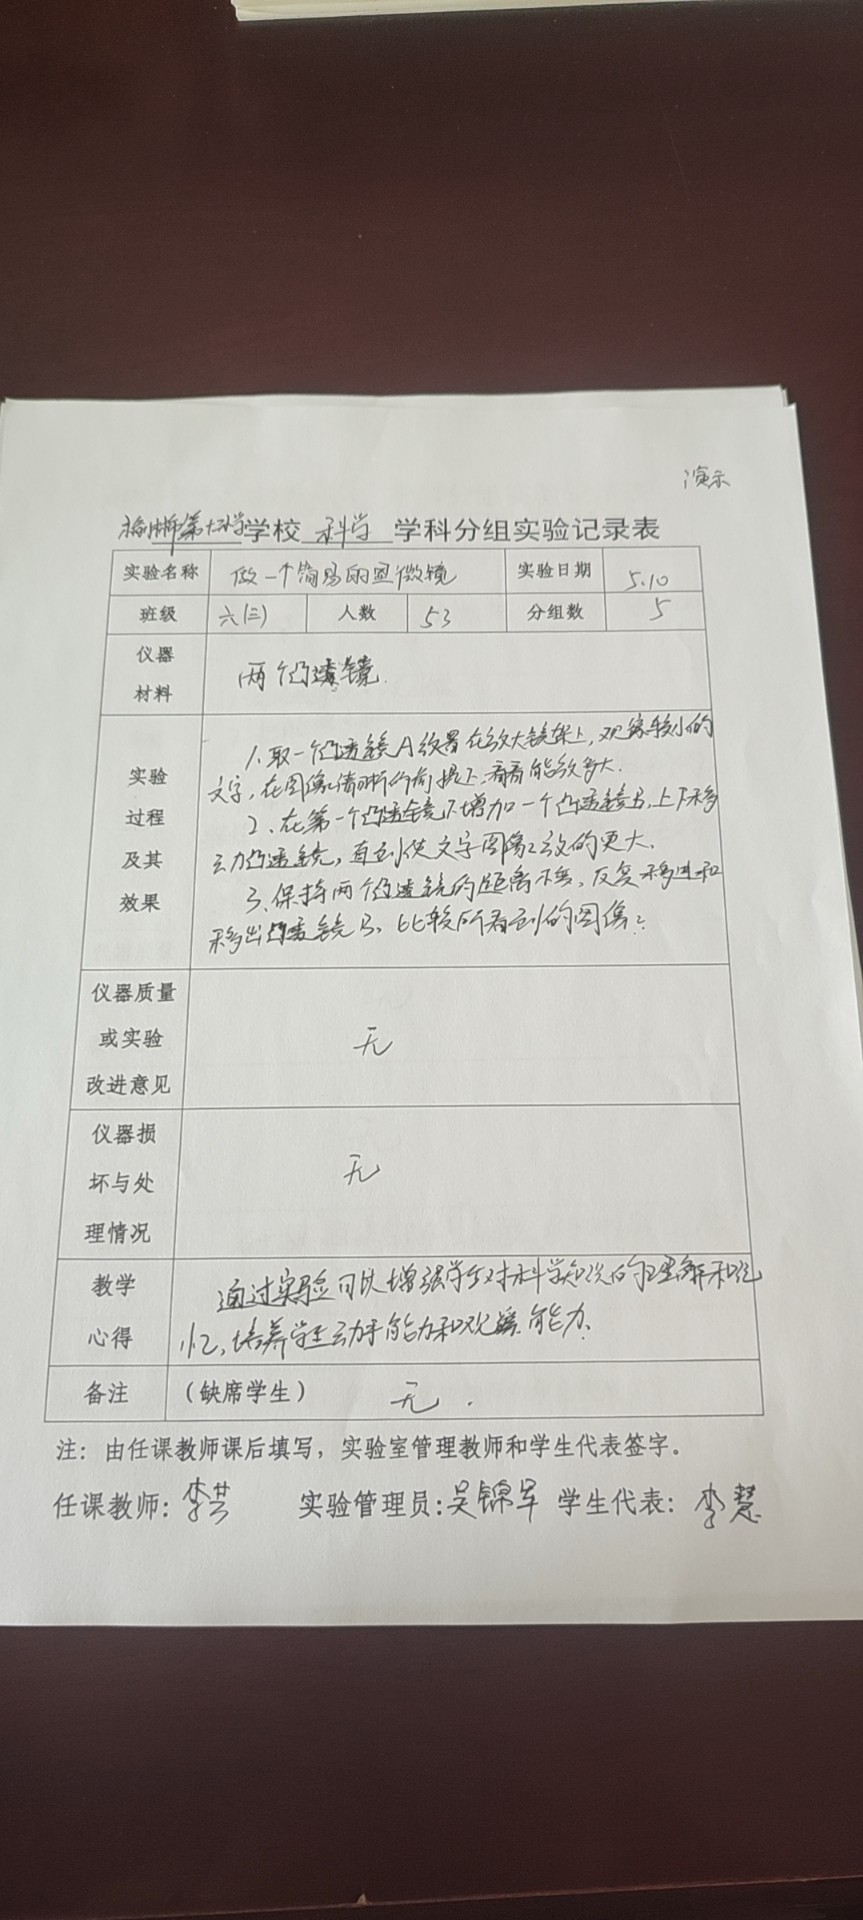 演示
第十小学学校 科学 学科分组实验记录表
实验名称 做一个简易的显微镜 实验日期 5.10
班级 六(三) 人数 53 分组数 5
仪器
材料
两个凸透镜.
实验
过程
及其
效果
1.取一个凸透镜A放置在放大镜架上,观察较小的
文字,在图像清晰的前提下,看看能放多大.
2、在第一个凸透镜下增加一个凸透镜B,上下移
动凸透镜,直到使文字图像放的更大.
3、保持两个凸透镜的距离不变,反复移进和
移出凸透镜B,比较所看到的图像?
仪器质量
或实验
改进意见
无
仪器损
坏与处
理情况
无
教学
心得
通过实验可以增强学生对科学知识的理解和记
忆,培养学生动手能力和观察能力.
备注 (缺席学生) 无.
注:由任课教师课后填写,实验室管理教师和学生代表签字。
任课教师:李 实验管理员:吴锦军 学生代表:李慧